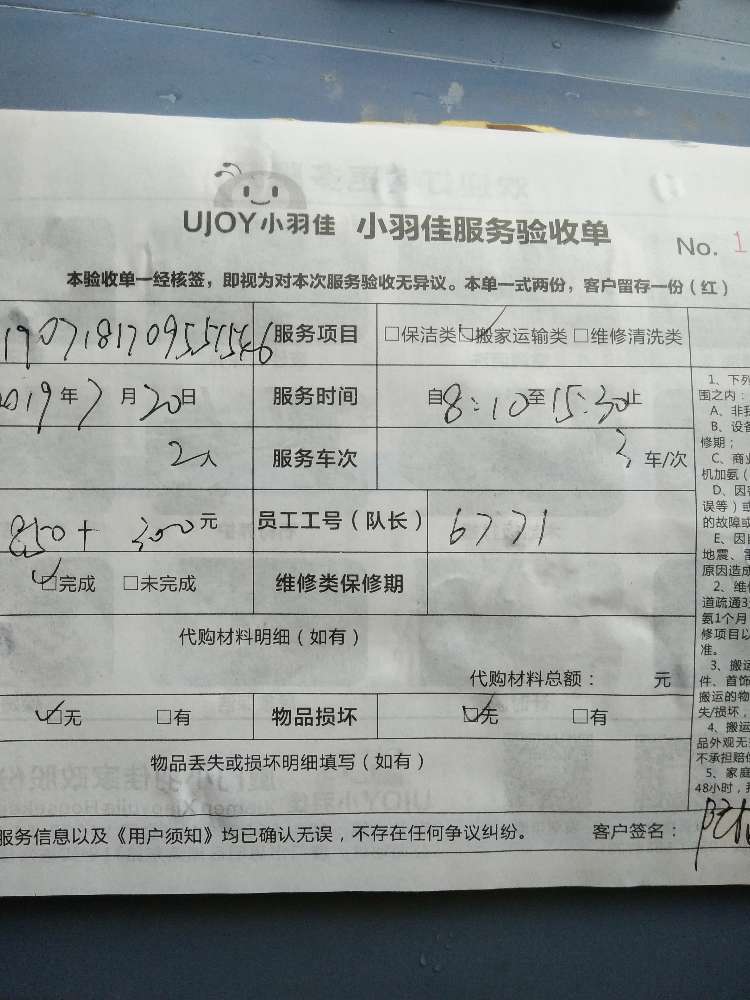 UJOY小羽佳 小羽佳服务验收单
No. 1
本验收单一经核签，即视为对本次服务验收无异议。本单一式两份，客户留存一份（红）
服务项目 □保洁类 ☑搬家运输类 □维修清洗类
2019年7月20日 服务时间 自8:10至15:30止
2人 服务车次 3车/次
850+300元 员工工号（队长） 6771
☑完成 □未完成 维修类保修期
代购材料明细（如有）
代购材料总额： 元
☑无 □有 物品损坏 ☑无 □有
物品丢失或损坏明细填写（如有）
服务信息以及《用户须知》均已确认无误，不存在任何争议纠纷。 客户签名：
1、下列
围之内：
A、非我
B、设备
修期；
C、商业
机加氨（
D、因客
误等）或
的故障或
E、因自
地震、雷
原因造成
2、维修
道疏通3
氨1个月
修项目以
准。
3、搬运
件、首饰
搬运的物
失/损坏，
4、搬运
品外观无
不承担赔偿
5、家庭
48小时，